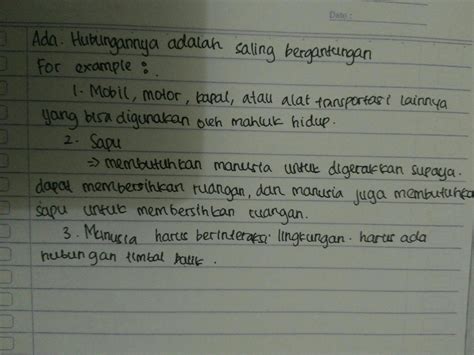 Date :
Ada. Hubungannya adalah saling bergantungan
For example :
1. Mobil, motor, kapal, atau alat transportasi lainnya
yang bisa digunakan oleh mahluk hidup.
2. Sapu
=> membutuhkan manusia untuk digerakkan supaya.
dapat membersihkan ruangan, dan manusia juga membutuhkan
sapu untuk membersihkan ruangan.
3. Manusia harus berinteraksi lingkungan. harus ada
hubungan timbal balik.